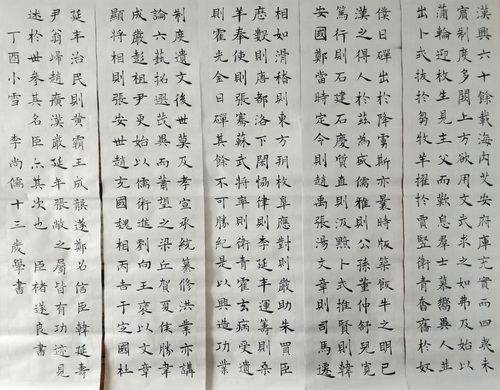 漢興六十餘載海內艾安府庫充實而四夷未
賓制度多闕上方欲用文武求之如弗及始以
蒲輪迎枚生見主父而歎息群士慕嚮異人並
出卜式拔於芻牧羊擢於賈豎衛青奮於奴
僕日磾出於降虜斯亦曩時版築飯牛之明已
漢之得人於茲為盛儒雅則公孫董仲舒兒寬
篤行則石建石慶質直則汲黯卜式推賢則韓
安國鄭當時定令則趙禹張湯文章則司馬遷
相如滑稽則東方朔枚皋應對則嚴助朱買臣
曆數則唐都洛下閎協律則李延年運籌則桑
羊奉使則張騫蘇武將率則衛青霍去病受遺
則霍光金日磾其餘不可勝紀是以興造功業
制度遺文後世莫及孝宣承統纂修洪業亦講
論六藝招選茂異而蕭望之梁丘賀夏侯勝韋
成嚴彭祖尹更始以儒術進劉向王褒以文章
顯將相則張安世趙充國魏相丙吉于定國杜
延年治民則黃霸王成龔遂鄭召信臣韓延壽
尹翁歸趙廣漢嚴延年張敞之屬皆有功迹見
述於世參其名臣亦其次也 臣褚遂良書
丁酉小雪 李尚儒十三歲學書